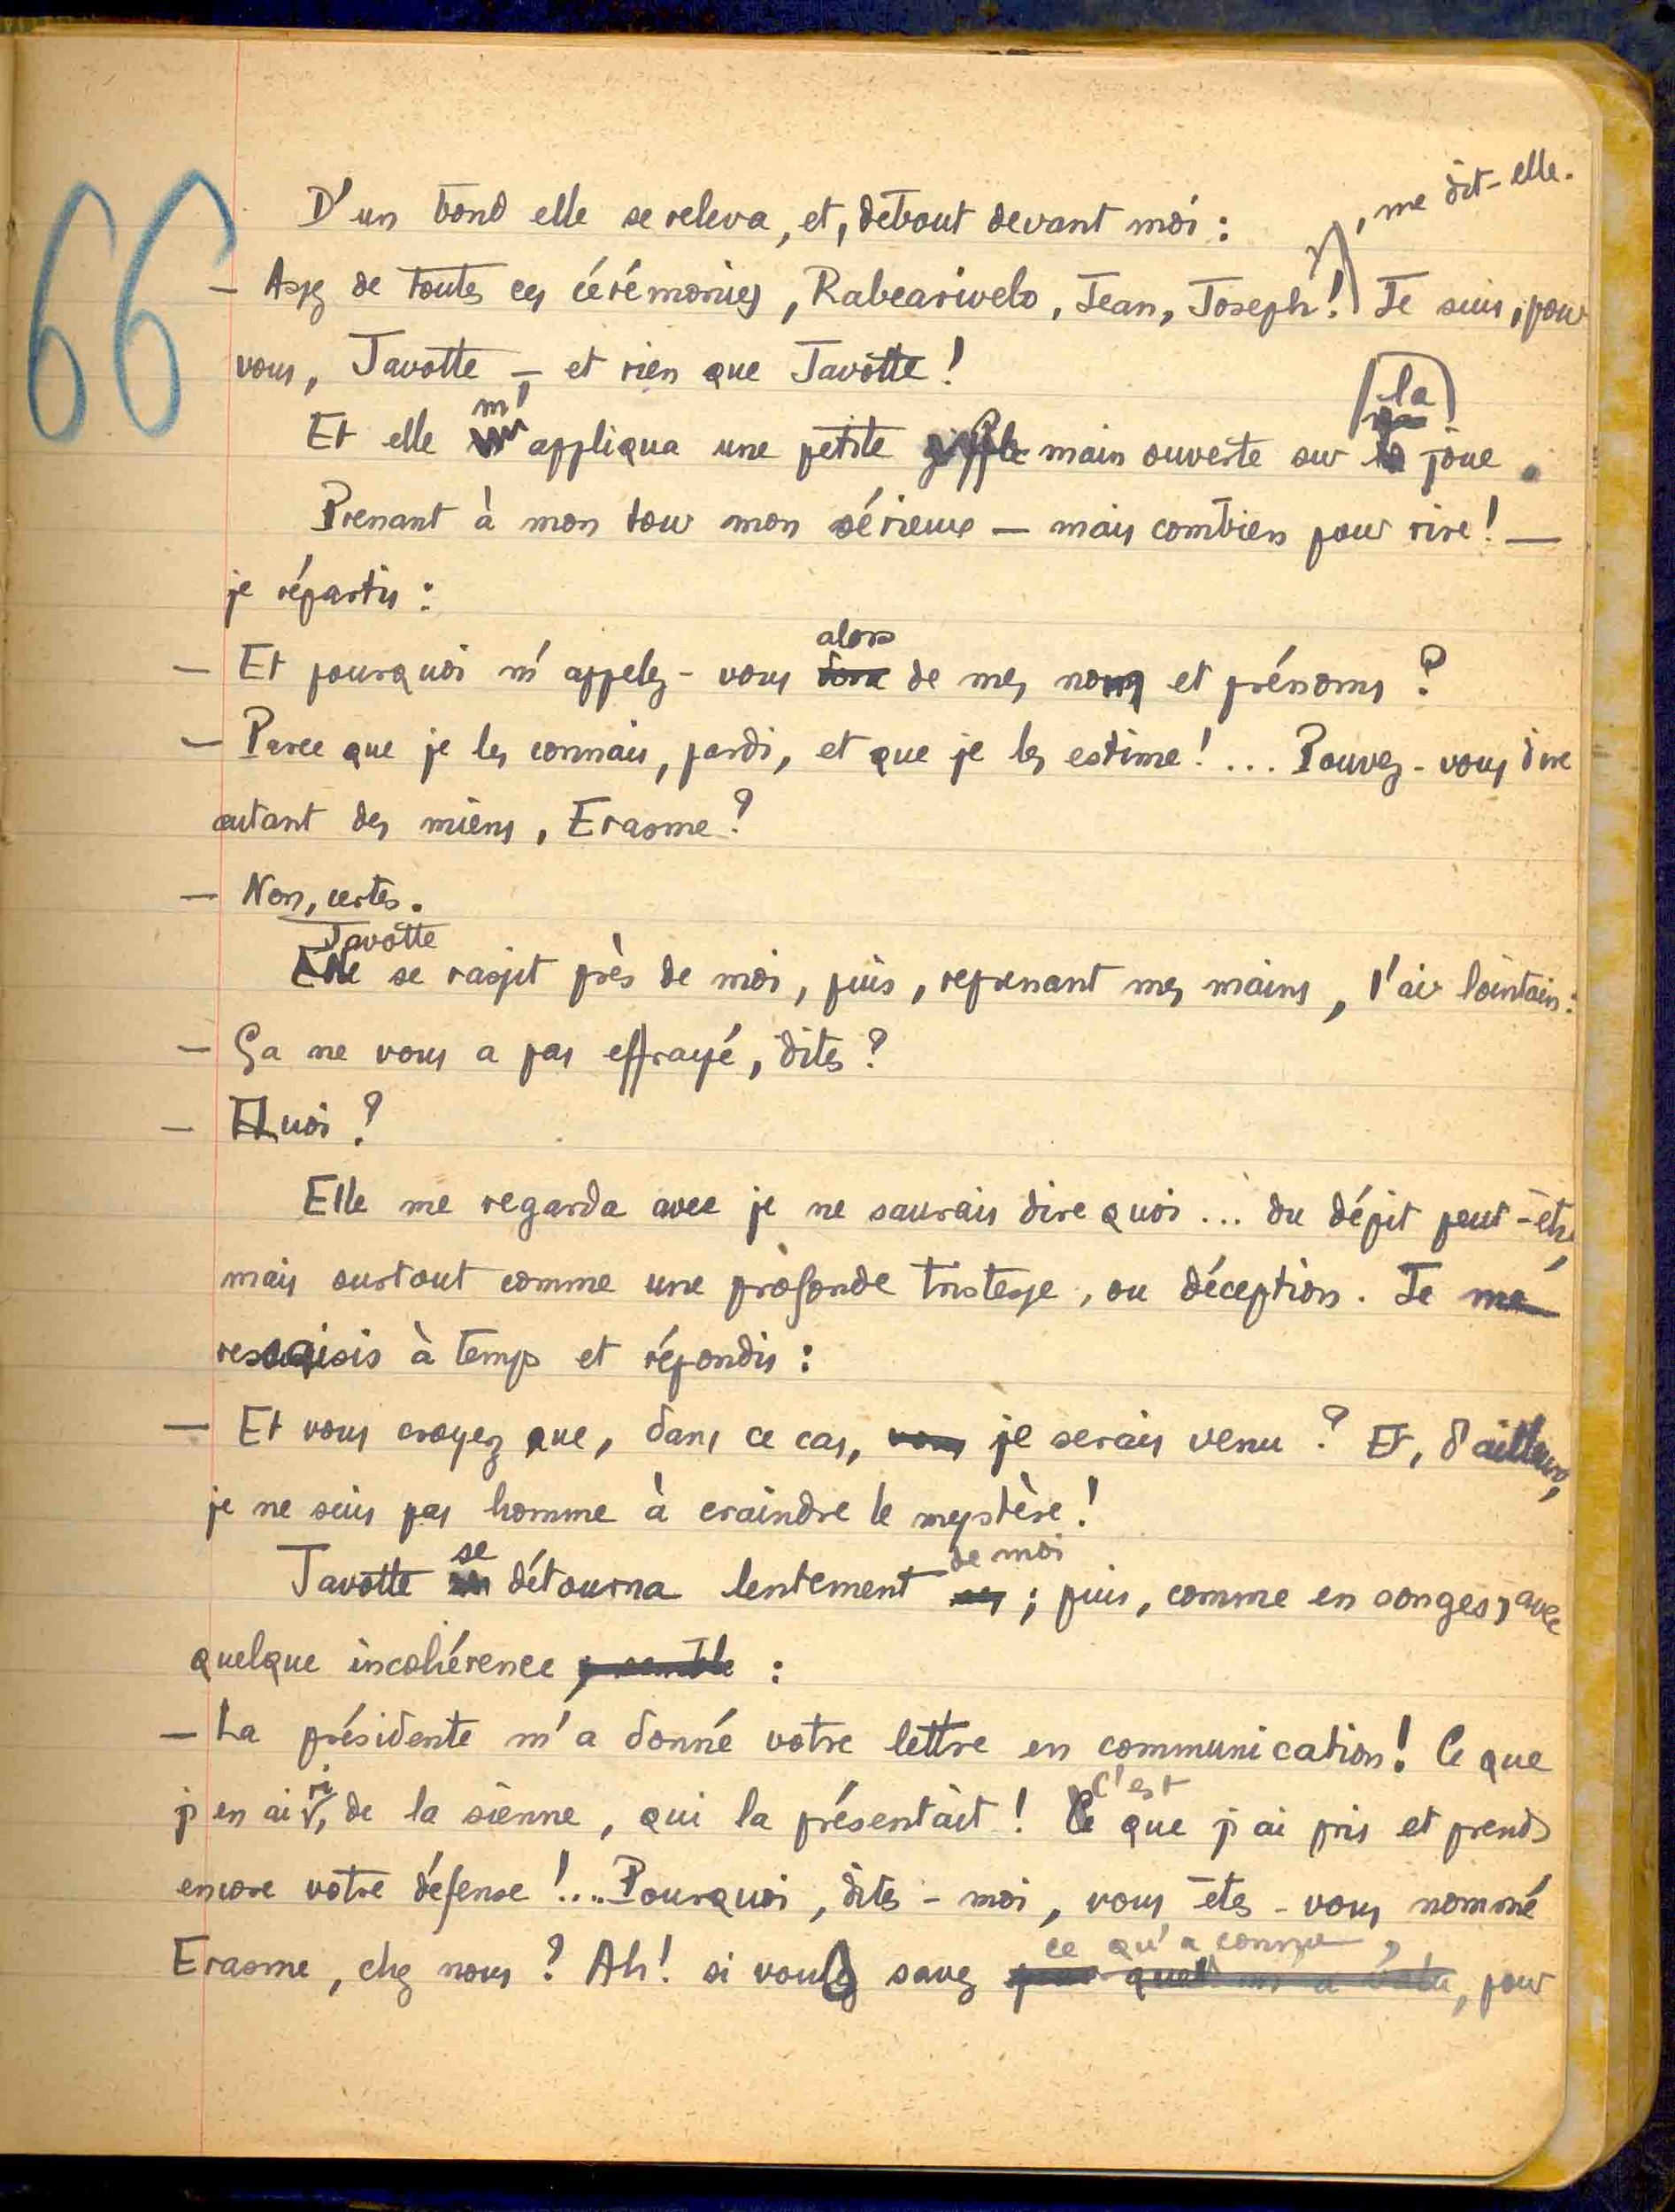 66
D'un bond elle se releva, et, debout devant moi :
, me dit-elle.
— Assez de toutes ces cérémonies, Rabearivelo, Jean, Joseph ! Je suis, pour
vous, Javotte — et rien que Javotte !
Et elle m'appliqua une petite giffle main ouverte sur la joue.
Prenant à mon tour mon sérieux — mais combien pour rire ! —
je répartis :
— Et pourquoi m'appelez-vous donc alors de mes noms et prénoms ?
— Parce que je les connais, pardi, et que je les estime !... Pouvez-vous dire
autant des miens, Erasme ?
— Non, certes.
Elle Javotte se rassit près de moi, puis, reprenant mes mains, l'air lointain :
— Ça ne vous a pas effrayé, dites ?
— Quoi ?
Elle me regarda avec je ne saurais dire quoi... du dépit peut-être,
mais surtout comme une profonde tristesse, ou déception. Je me
ressaisis à temps et répondis :
— Et vous croyez que, dans ce cas, vous je serais venu ? Et, d'ailleurs,
je ne suis pas homme à craindre le mystère !
Javotte se détourna lentement de moi ; puis, comme en songes, avec
quelque incohérence :
— La présidente m'a donné votre lettre en communication ! Ce que
j'en ai ri, de la sienne, qui la présentait ! Ce c'est que j'ai pris et prends
encore votre défense !... Pourquoi, dites-moi, vous êtes-vous nommé
Erasme, chez nous ? Ah ! si vous savez ce qu'a connu, pour